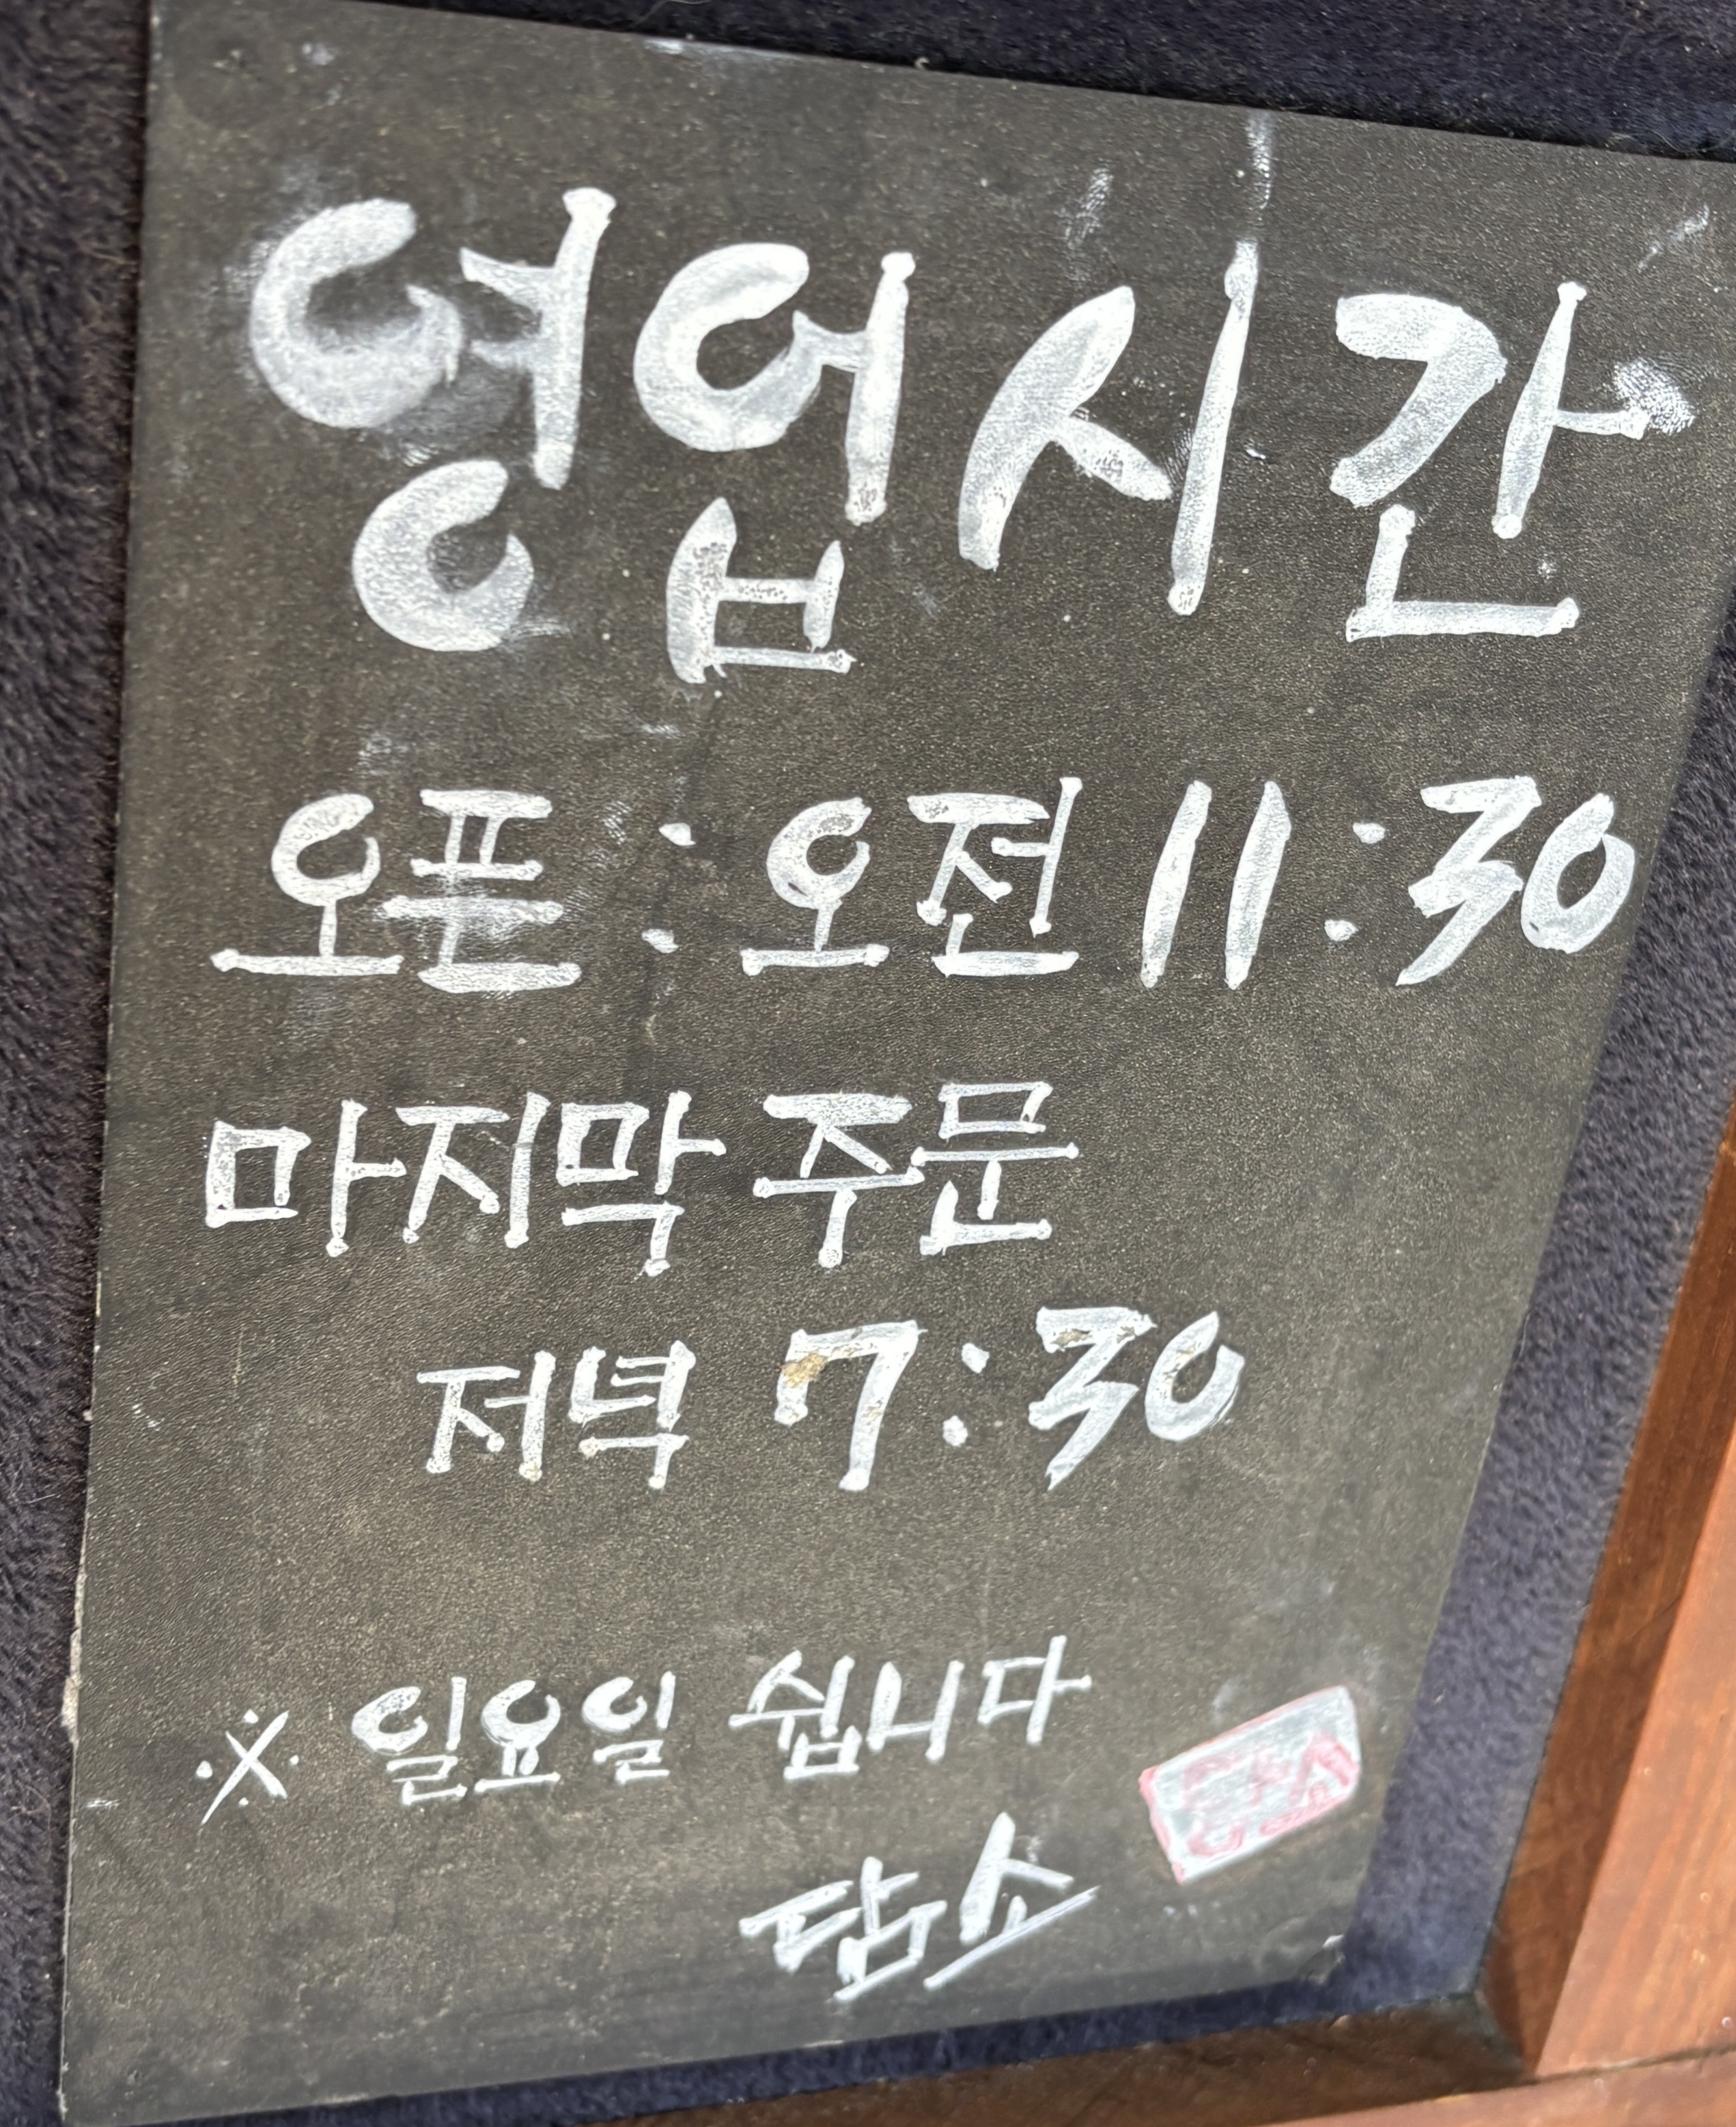 영업시간
오픈 : 오전 11:30
마지막 주문
저녁 7:30
※ 일요일 쉽니다
담소